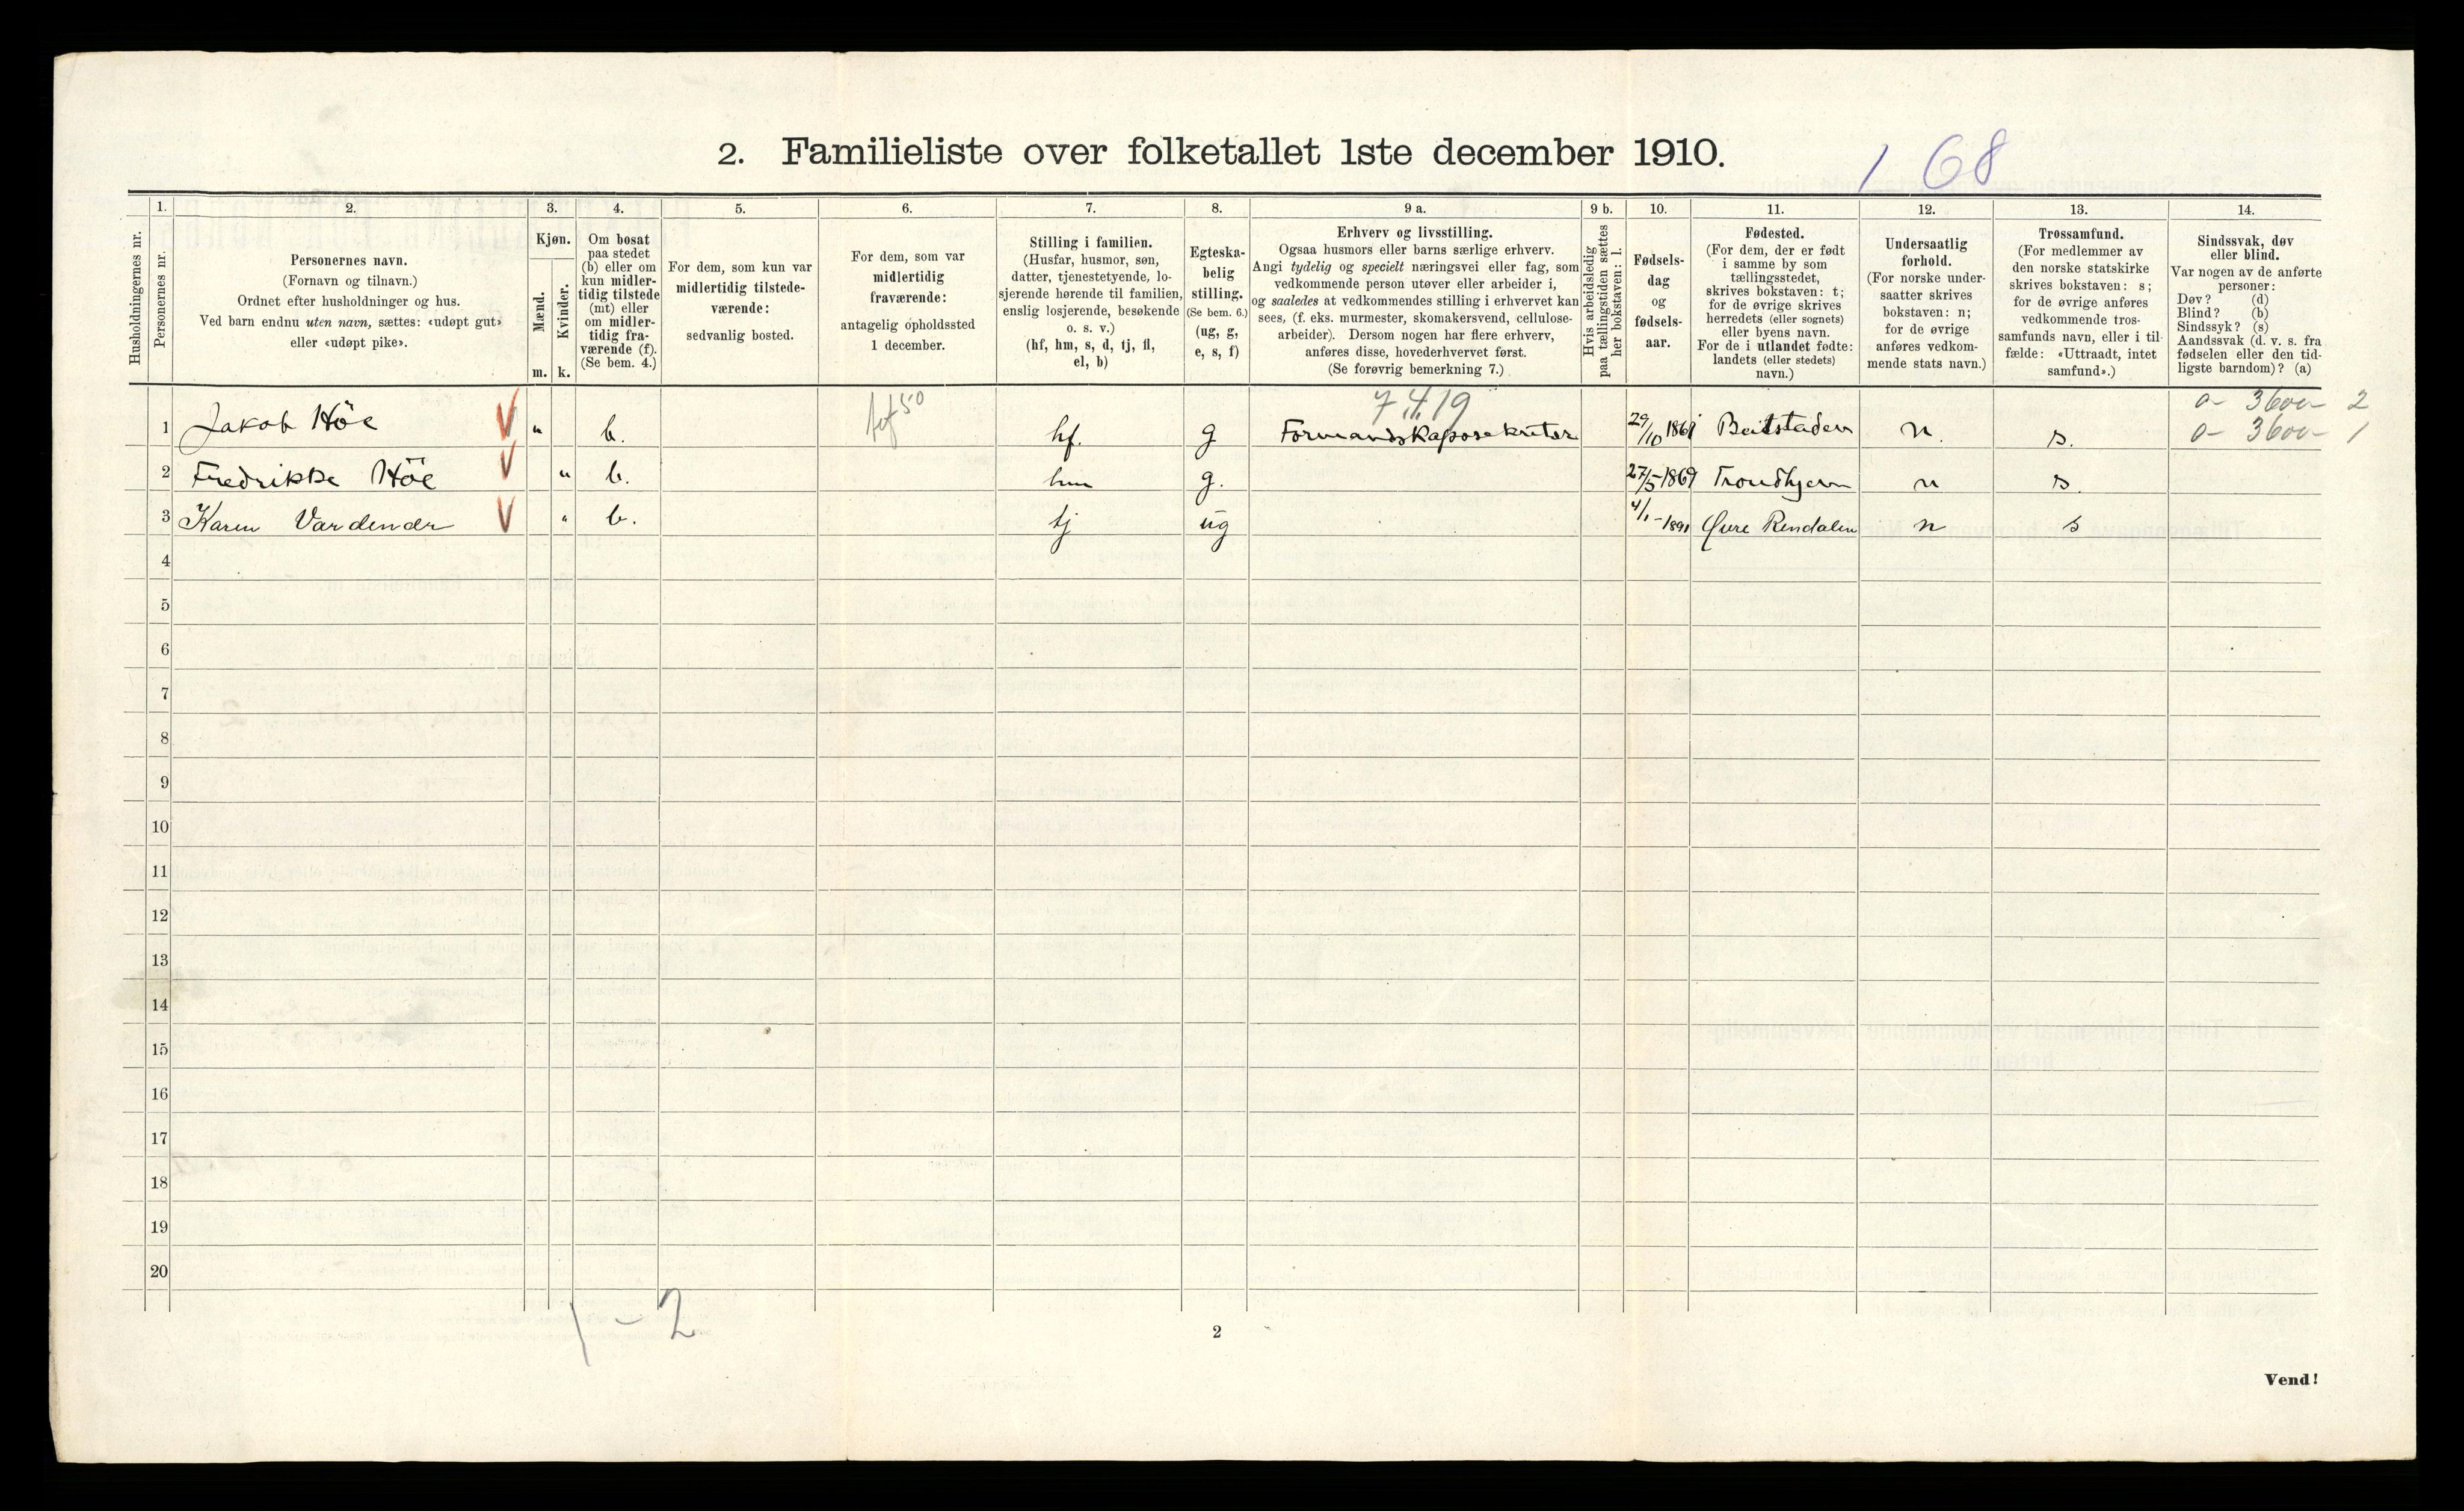 2. Familieliste over folketallet 1ste december 1910.
1 68
Husholdningernes nr.
1.
Personernes nr.
2.
Personernes navn.
(Fornavn og tilnavn.)
Ordnet efter husholdninger og hus.
Ved barn endnu uten navn, sættes: «udøpt gut»
eller «udøpt pike».
3.
Kjøn.
Mænd.
Kvinder.
m. k.
4.
Om bosat
paa stedet
(b) eller om
kun midler-
tidig tilstede
(mt) eller
om midler-
tidig fra-
værende (f).
(Se bem. 4.)
5.
For dem, som kun var
midlertidig tilstede-
værende:
sedvanlig bosted.
6.
For dem, som var
midlertidig
fraværende:
antagelig opholdssted
1 december.
7.
Stilling i familien.
(Husfar, husmor, søn,
datter, tjenestetyende, lo-
sjerende hørende til familien,
enslig losjerende, besøkende
o. s. v.)
(hf, hm, s, d, tj, fl,
el, b)
8.
Egteska-
belig
stilling.
(Se bem. 6.)
(ug, g,
e, s, f)
9 a.
Erhverv og livsstilling.
Ogsaa husmors eller barns særlige erhverv.
Angi tydelig og specielt næringsvei eller fag, som
vedkommende person utøver eller arbeider i,
og saaledes at vedkommendes stilling i erhvervet kan
sees, (f. eks. murmester, skomakersvend, cellulose-
arbeider). Dersom nogen har flere erhverv,
anføres disse, hovederhvervet først.
(Se forøvrig bemerkning 7.)
9 b.
Hvis arbeidsledig
paa tællingstiden sættes
her bokstaven: l.
10.
Fødsels-
dag
og
fødsels-
aar.
11.
Fødested.
(For dem, der er født
i samme by som
tællingsstedet,
skrives bokstaven: t;
for de øvrige skrives
herredets (eller sognets)
eller byens navn.
For de i utlandet fødte:
landets (eller stedets)
navn.)
12.
Undersaatlig
forhold.
(For norske under-
saatter skrives
bokstaven: n;
for de øvrige
anføres vedkom-
mende stats navn.)
13.
Trossamfund.
(For medlemmer av
den norske statskirke
skrives bokstaven: s;
for de øvrige anføres
vedkommende tros-
samfunds navn, eller i til-
fælde: «Uttraadt, intet
samfund».)
14.
Sindssvak, døv
eller blind.
Var nogen av de anførte
personer:
Døv? (d)
Blind? (b)
Sindssyk? (s)
Aandssvak (d. v. s. fra
fødselen eller den tid-
ligste barndom)? (a)
7.4.19 0- 3600- 2
1 Jakob Höe V " b. hf. g Formandskapssekretær 29/10 1861 Beitstaden n. s. 0- 3600- 1
2 Fredrikke Höe V " b. hm g. 27/5-1869 Trondhjem n s.
3 Karen Vardenær V " b. tj ug 4/1-1891 Øvre Rendalen n s
4
5
6
7
8
9
10
11
12
13
14
15
16
17
18
19
20
1 - 2
2
Vend!